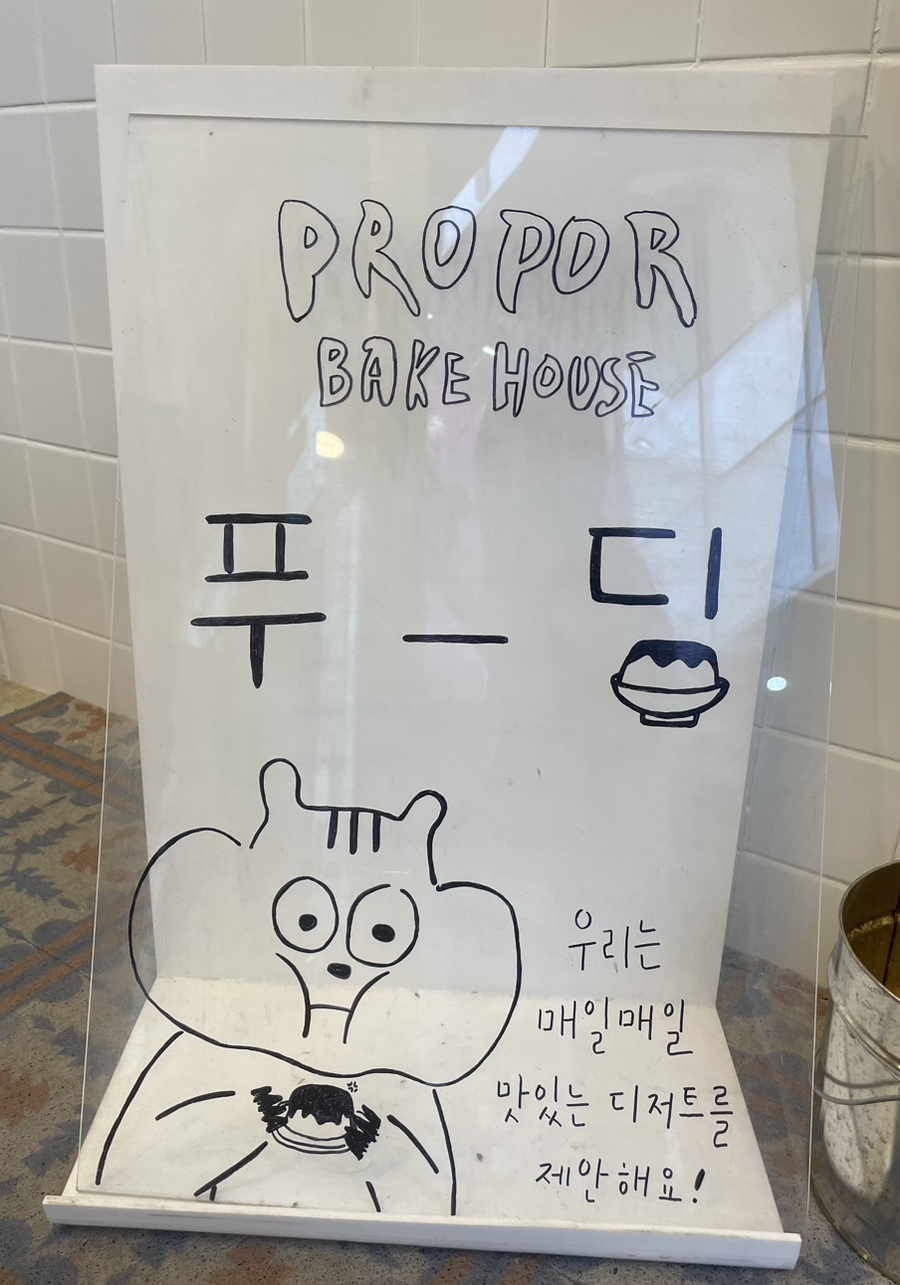 PROPOR
BAKE HOUSE
푸 — 딩
우리는
매일매일
맛있는 디저트를
제안해요!